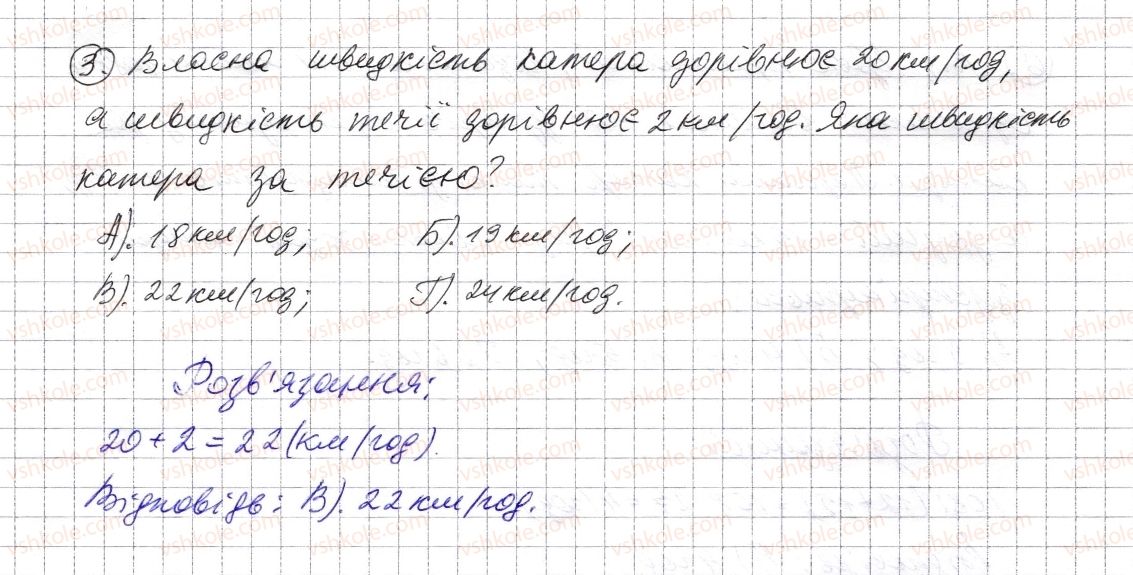 3. Власна швидкість катера дорівнює 20 км/год,
а швидкість течії дорівнює 2 км/год. Яка швидкість
катера за течією?
А). 18 км/год; Б). 19 км/год;
В). 22 км/год; Г). 24 км/год.
Розв'язання:
20 + 2 = 22 (км/год).
Відповідь: В). 22 км/год.